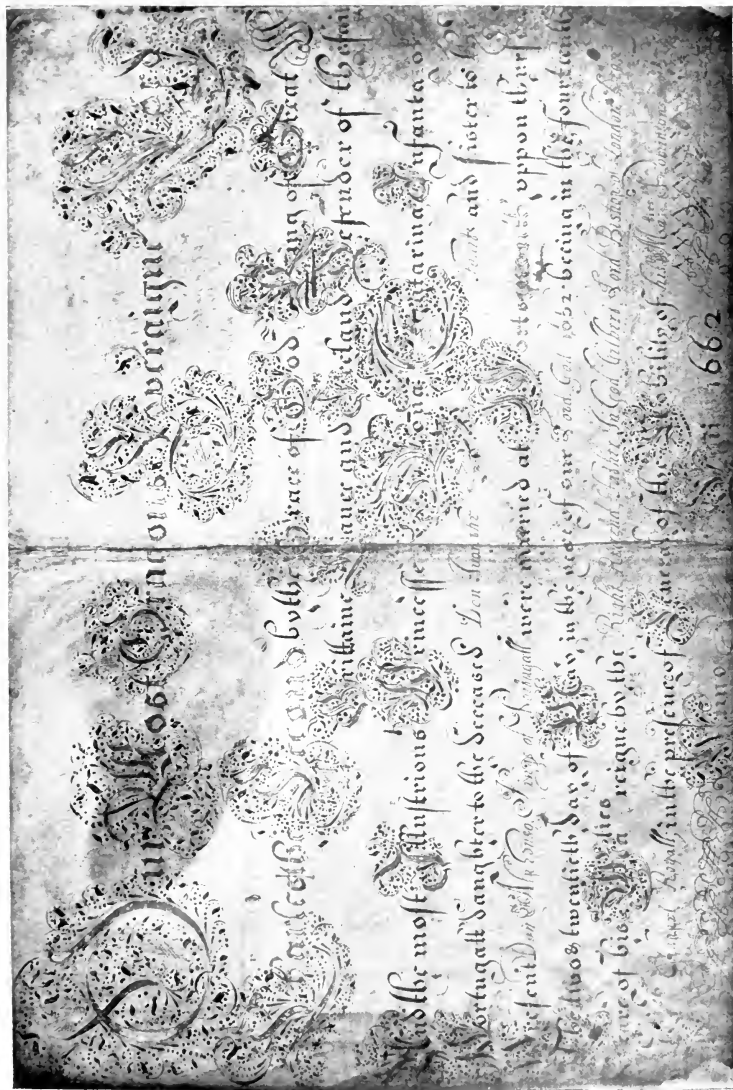 Our Most Gracious Soveraigne Lord
Charles the Second by the Grace of God King of Great
Brittaine ffrance and Ireland Defender of the faith
And the most Illustrious Princesse Dona Catarina Infanta of
Portugall daughter to the deceased Don Juan the and sister to
present Don Alphonso King of Portugall were married at Portsmouth uppon thursday
The two & twentieth day of May in the yeare of our Lord God 1662 being in the fourteenth
yeare of his Maties reigne by the Right Reverend Father in God Gilbert Lord Bishop of London
Chappel Royall in the presence of Severas of the Nobility of his Maties
Anno 1662